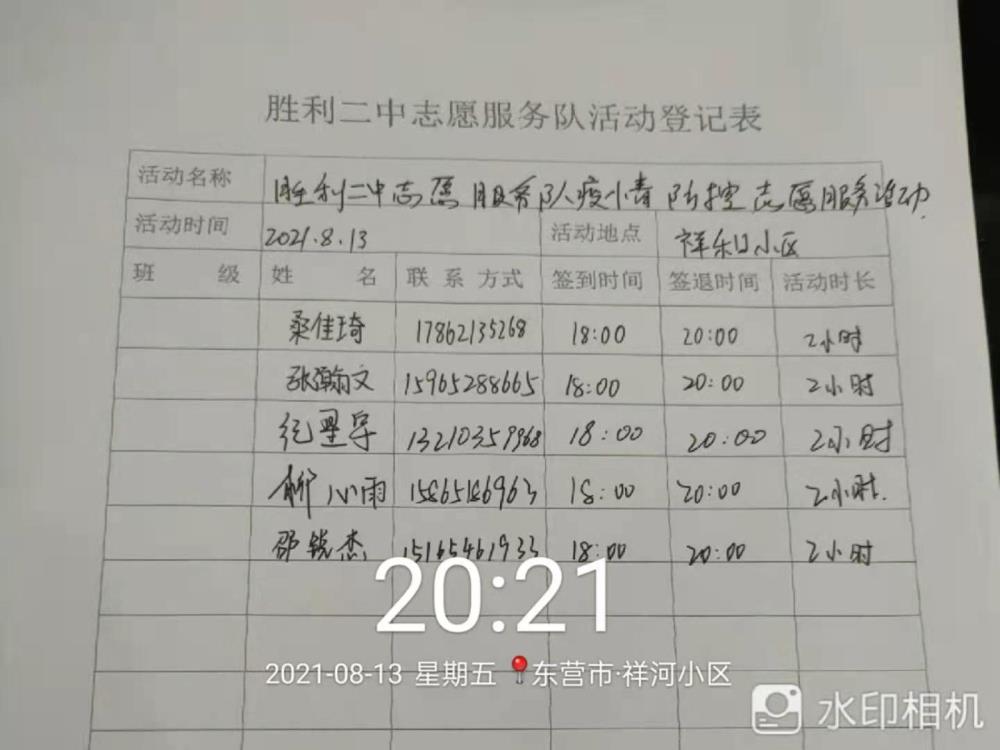 胜利二中志愿服务队活动登记表
活动名称 胜利二中志愿服务队疫情防控志愿服务活动
活动时间 2021.8.13 活动地点 祥和小区
班 级 姓 名 联 系 方式 签到时间 签退时间 活动时长
桑佳琦 17862135268 18:00 20:00 2小时
张瀚文 15965288665 18:00 20:00 2小时
纪星宇 13210359968 18:00 20:00 2小时
柳心雨 15865186963 18:00 20:00 2小时.
邵锐杰 15165461933 18:00 20:00 2小时
20:21
2021-08-13 星期五 东营市·祥河小区
水印相机